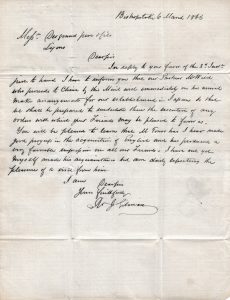 Bishopsgate St 6 March 1863
Mess
Lyons
Dear Sirs
In reply to your favor of the 3rd Inst
just to hand I have to inform you that our Partner
who proceeds to China by this Mail will immediately on his arrival
make arrangements for our establishment in Japan so that
we shall be prepared to undertake there the execution of any
orders with which your Friends may be pleased to favor us.
You will be pleased to learn that M has I hear made
great progress in the acquisition of English and has produced a
very favorable impression on all our Friends. I have not yet
myself made his acquaintance but am daily expecting the
pleasure of a visit from him
I am
Dear Sirs
Yours faithfully